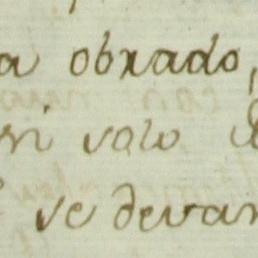 a obrado,
ni solo
se devan